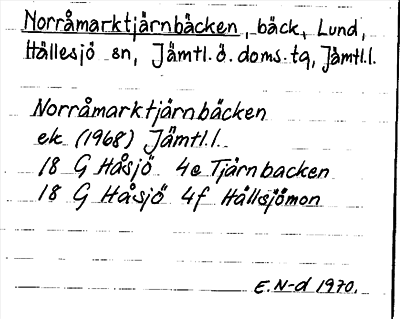 Norråmarktjärnbäcken, bäck, Lund,
Hällesjö sn, Jämtl.ö.doms.tg, Jämtl.l.
Norråmarktjärnbäcken
ek (1968) Jämtl.l.
18 G Håsjö 4e Tjärnbacken
18 G Håsjö 4f Hällsjömon
E.N-d 1970.